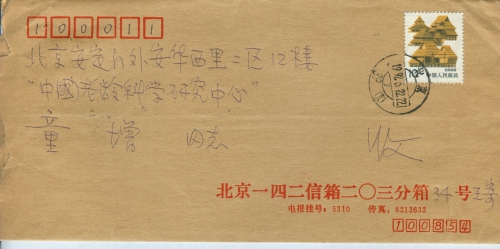 100011
北京安定门外安华西里二区12楼
"中國老龄科学研究中心"
童增 同志 收
中国人民邮政
北京一四二信箱二〇三分箱34号王
电报挂号：5310 传真：8213633
100854